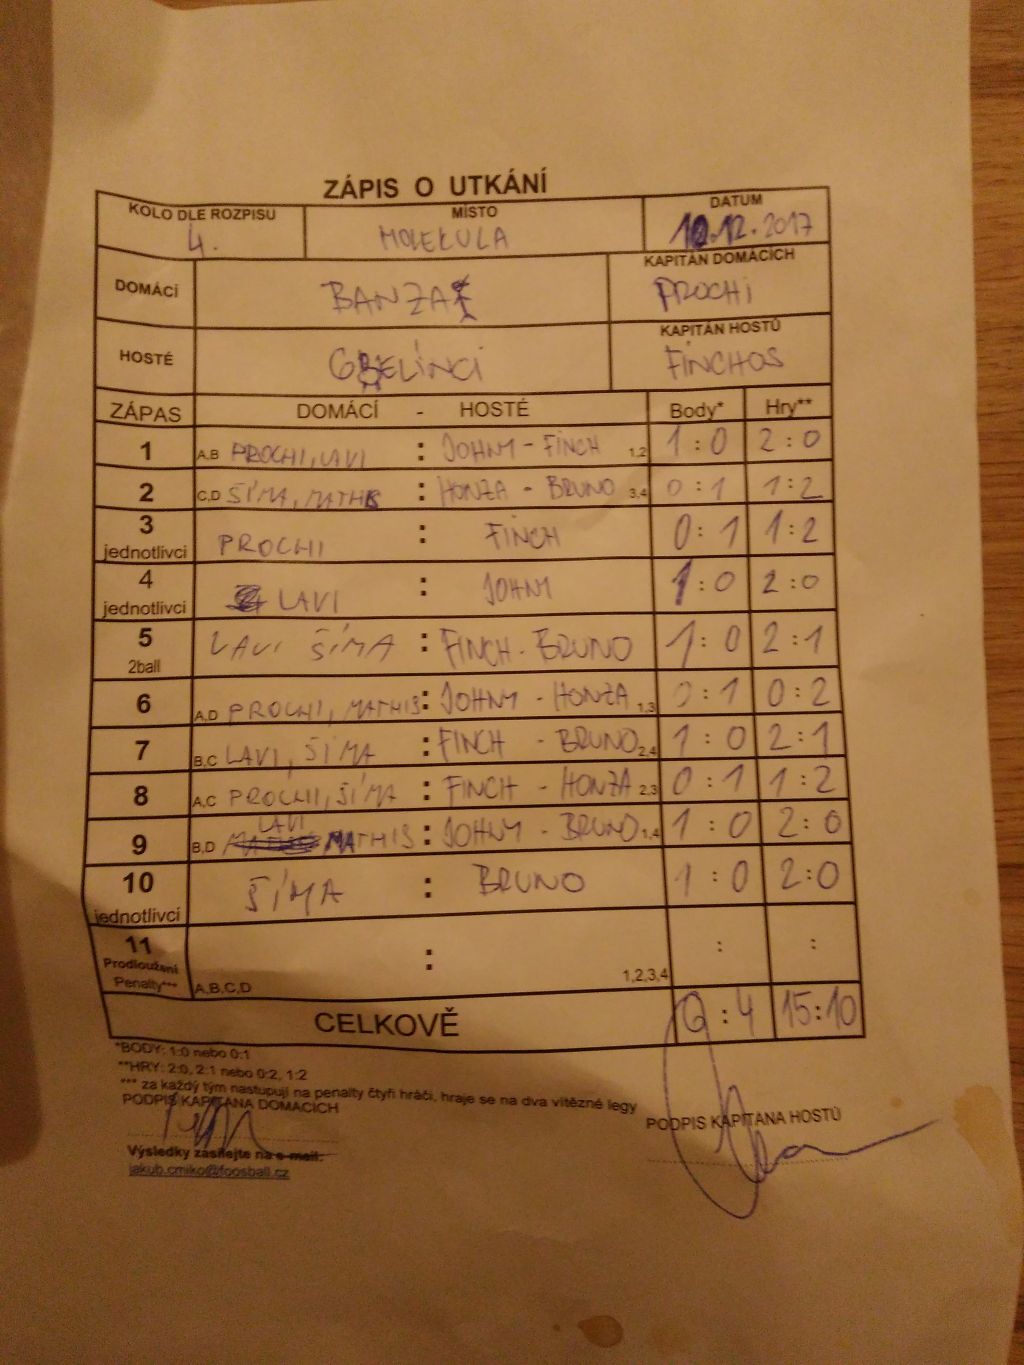 ZÁPIS O UTKÁNÍ
KOLO DLE ROZPISU MÍSTO DATUM
4. MOLEKULA 10.12.2017
DOMÁCÍ BANZAI KAPITÁN DOMÁCÍCH PROCHI
HOSTÉ GBELÍNCI KAPITÁN HOSTŮ FINCHOS
ZÁPAS DOMÁCÍ - HOSTÉ Body* Hry**
1 A,B PROCHI, LAVI : JOHNY - FINCH 1,2 1:0 2:0
2 C,D ŠÍMA, MATHIS : HONZA - BRUNO 3,4 0:1 1:2
3 jednotlivci PROCHI : FINCH 0:1 1:2
4 jednotlivci LAVI : JOHNY 1:0 2:0
5 2ball LAVI ŠÍMA : FINCH - BRUNO 1:0 2:1
6 A,D PROCHI, MATHIS : JOHNY - HONZA 1,3 0:1 0:2
7 B,C LAVI, ŠÍMA : FINCH - BRUNO 2,4 1:0 2:1
8 A,C PROCHI, ŠÍMA : FINCH - HONZA 2,3 0:1 1:2
9 B,D LAVI MATHIS : JOHNY - BRUNO 1,4 1:0 2:0
10 jednotlivci ŠÍMA : BRUNO 1:0 2:0
11 Prodloužení Penalty*** A,B,C,D : 1,2,3,4 : :
CELKOVĚ :4 15:10
*BODY: 1:0 nebo 0:1
**HRY: 2:0, 2:1 nebo 0:2, 1:2
*** za každý tým nastupují na penalty čtyři hráči, hraje se na dva vítězné legy
PODPIS KAPITÁNA DOMÁCÍCH PODPIS KAPITÁNA HOSTŮ
Výsledky zasílejte na e-mail:
jakub.cmiko@foosball.cz